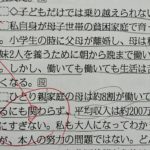 ○子どもだけでは乗り越えられない
私自身が母子世帯の貧困家庭で育
小学生の時に父が離婚し、母は
妹2人を養うために朝から晩まで働い
しかし、働いても働いても生活は
くなる。
ひとり親家庭の母は約8割が働いて
るにも関わらず、平均収入は約200万
にすぎない。私も大人になってわか
が、本人の努力の問題ではない。ど